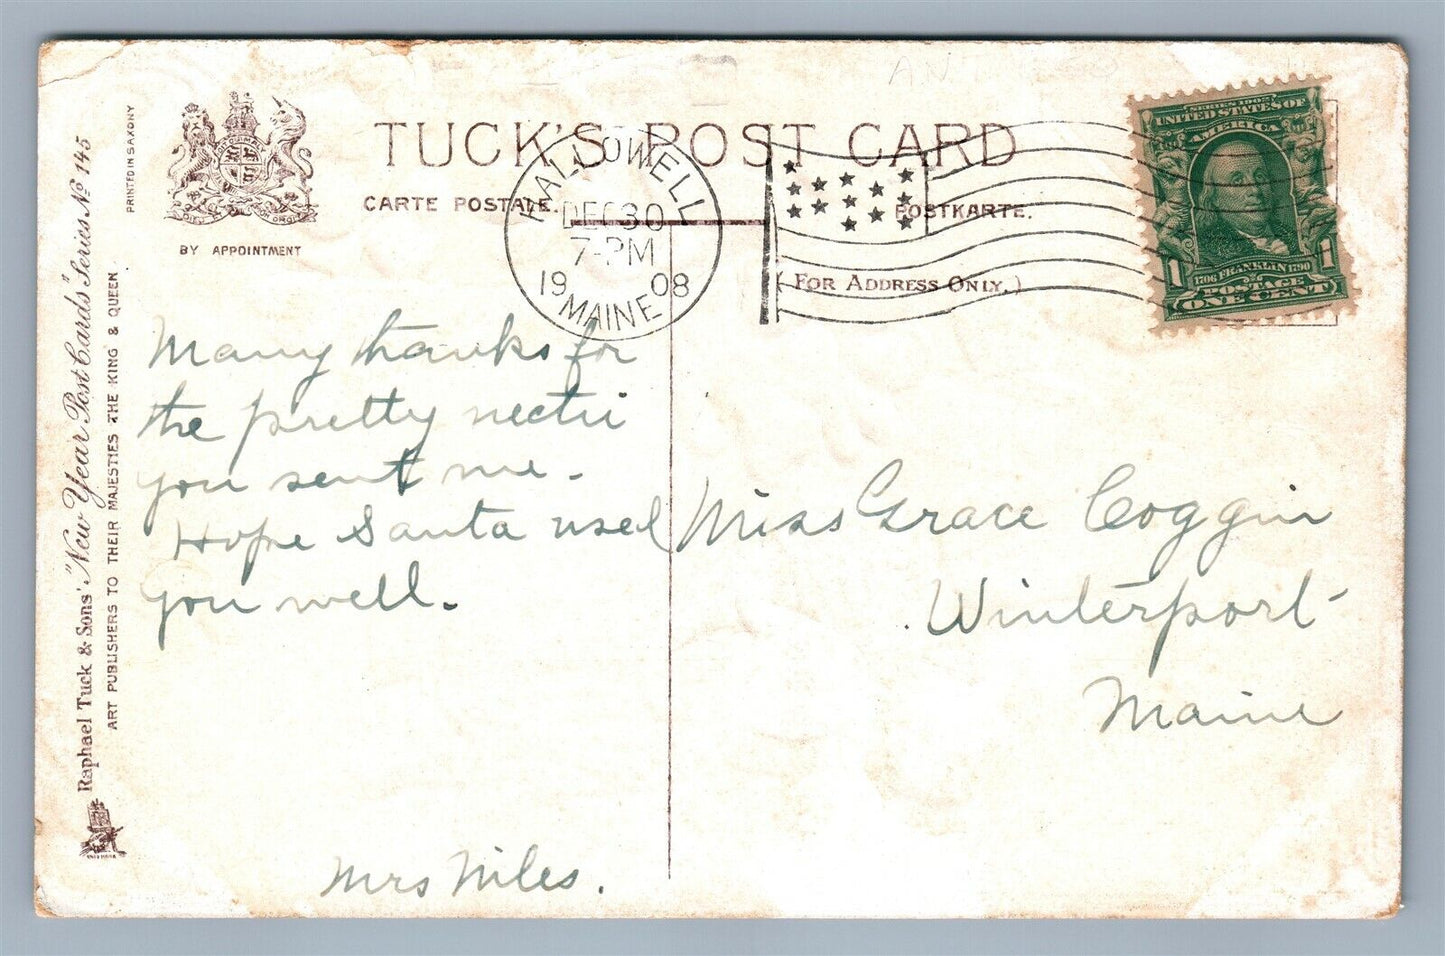 TUCK'S POST CARD
CARTE POSTALE.
POSTKARTE.
(FOR ADDRESS ONLY.)
BY APPOINTMENT
PRINTED IN SAXONY
Raphael Tuck & Sons' "New Year Post Cards" Series No 145
ART PUBLISHERS TO THEIR MAJESTIES THE KING & QUEEN
HALLOWELL
DEC 30
7-PM
1908
MAINE
SERIES 1902
UNITED STATES OF
AMERICA
1 1
1706 FRANKLIN 1790
POSTAGE
ONE CENT
Many thanks for
the pretty necktie
you sent me.
Hope Santa used
you well.
Mrs Niles.
Miss Grace Coggin
Winterport
Maine